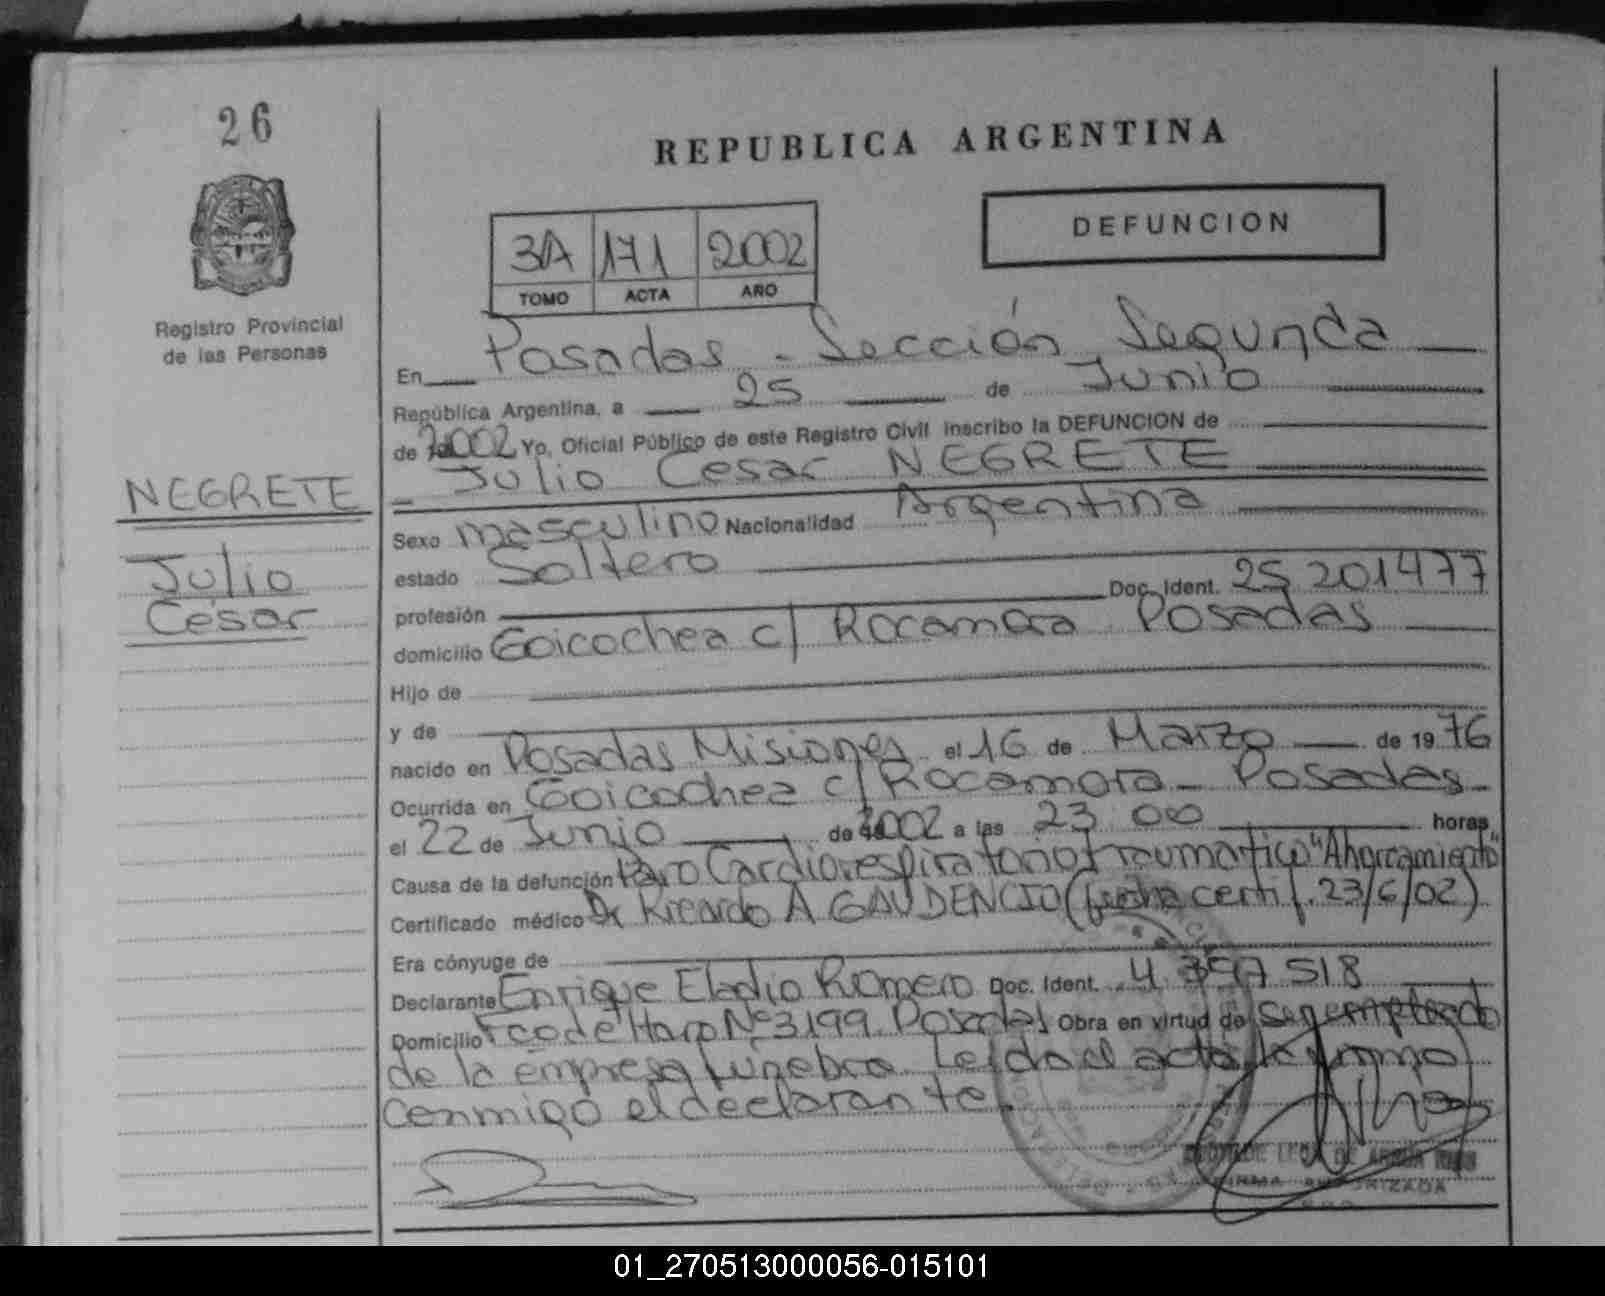 26
REPUBLICA ARGENTINA
DEFUNCION
3A 171 2002
TOMO ACTA AÑO
Registro Provincial
de las Personas
En Posadas - Sección Segunda
República Argentina, a 25 de Junio
de 2002 Yo, Oficial Público de este Registro Civil inscribo la DEFUNCION de
Julio Cesar NEGRETE
NEGRETE
Julio
César
Sexo masculino Nacionalidad Argentina
estado Soltero
profesión Doc. Ident. 25.201477
domicilio Goicochea c/ Rocamora Posadas
Hijo de
y de
nacido en Posadas Misiones el 16 de Marzo de 1976
Ocurrida en Goicochea c/ Rocamora - Posadas -
el 22 de Junio de 2002 a las 23 00 horas
Causa de la defunción Paro Cardiorespiratorio traumatico "Ahorcamiento"
Certificado médico Dr Ricardo A GAUDENCIO (fecha certif. 23/6/02)
Era cónyuge de
Declarante Enrique Eladio Romero Doc. Ident. 4.397 518
Domicilio Fco de Haro Nº 3199 Posadas Obra en virtud de ser empleado
de la empresa fúnebre. Leida el acta la firma
conmigo el declarante.
FIRMA AUTORIZADA
01_270513000056-015101